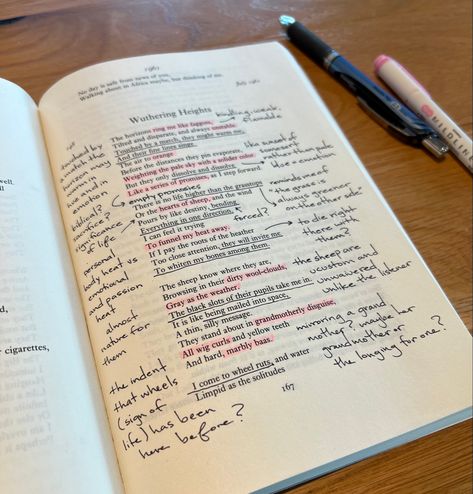 1961
No day is safe from news of you,
Walking about in Africa maybe, but thinking of me.
July 1961
Wuthering Heights
The horizons ring me like faggots,
Tilted and disparate, and always unstable.
Touched by a match, they might warm me,
And their fine lines singe
The air to orange
Before the distances they pin evaporate,
Weighting the pale sky with a solider color.
But they only dissolve and dissolve
Like a series of promises, as I step forward.
There is no life higher than the grasstops
Or the hearts of sheep, and the wind
Pours by like destiny, bending
Everything in one direction.
I can feel it trying
To funnel my heat away.
If I pay the roots of the heather
Too close attention, they will invite me
To whiten my bones among them.
The sheep know where they are,
Browsing in their dirty wool-clouds,
Gray as the weather.
The black slots of their pupils take me in.
It is like being mailed into space,
A thin, silly message.
They stand about in grandmotherly disguise,
All wig curls and yellow teeth
And hard, marbly baas.
I come to wheel ruts, and water
Limpid as the solitudes
167
touched by
a match the
warm in
emotion
biblical?
sacrifice?
significance
of life
personal
body heat vs
emotional
and passion
heat
almost
nature for
them
the indent
that wheels
(sign of
life) has been
here before?
flamable
empty promises
forced?
rather than pale
use emotion
reminds me of
"the grass is
always greener
on the other side"
to die right
there with
them?
the sheep are
custom and
unwavered
unlike the listener
mirroring a grand
mother? maybe her
grandmother or
the longing for one?
well.
cigarettes,
MILDLIN